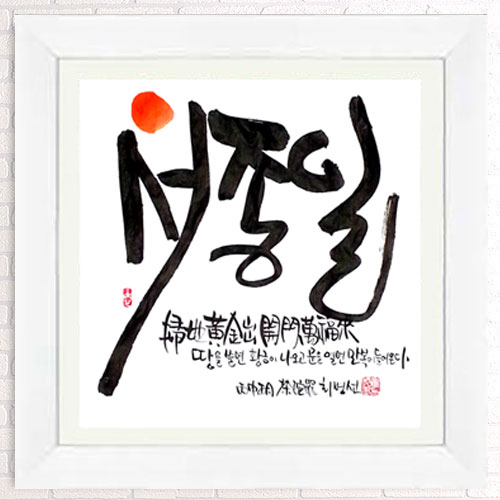 서종일
掃地黃金出 開門萬福來
땅을 쓸면 황금이 나오고 문을 열면 만복이 들어온다.